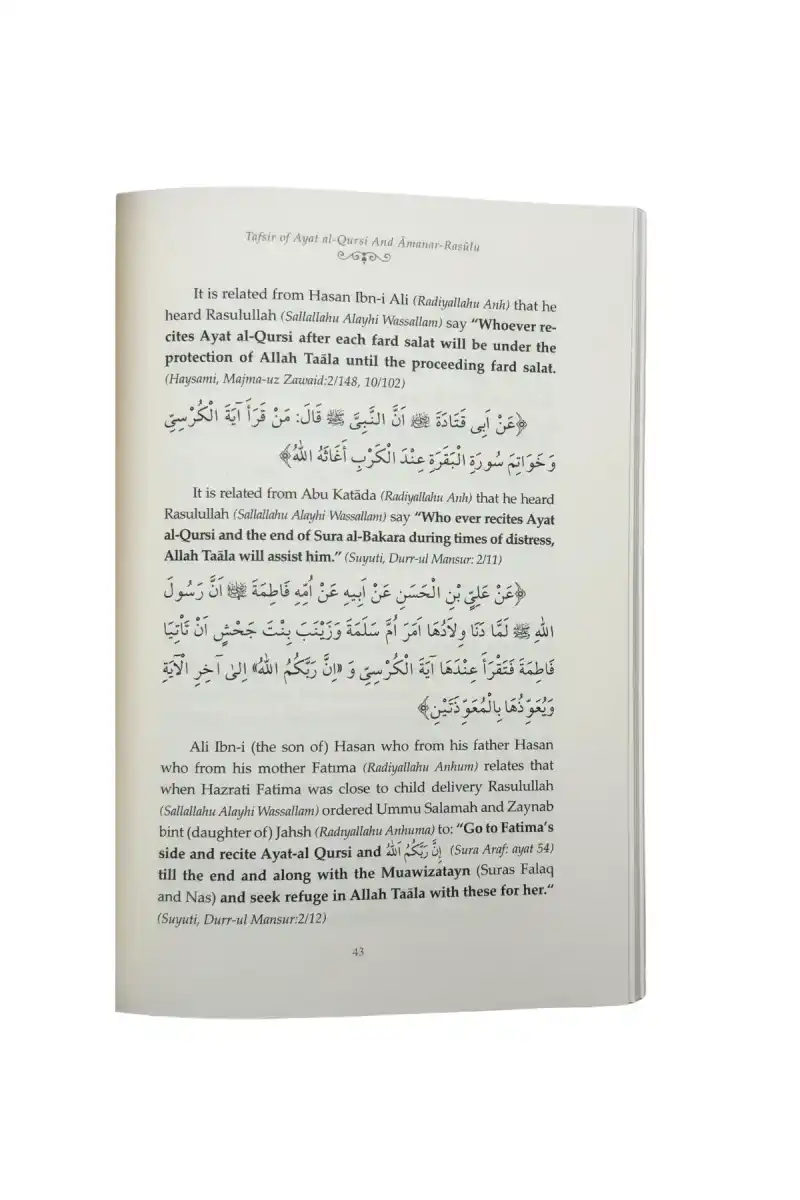 Tafsir of Ayat al-Qursi And Āmanar-Rasūlu
It is related from Hasan Ibn-i Ali (Radiyallahu Anh) that he
heard Rasulullah (Sallallahu Alayhi Wassallam) say “Whoever re-
cites Ayat al-Qursi after each fard salat will be under the
protection of Allah Taāla until the proceeding fard salat.
(Haysami, Majma-uz Zawaid:2/148, 10/102)
﴿عَنْ اَبِى قَتَادَةَ ﷺ اَنَّ النَّبِىَّ ﷺ قَالَ: مَنْ قَرَأَ آيَةَ الْكُرْسِىِّ
وَخَوَاتِمَ سُورَةِ الْبَقَرَةِ عِنْدَ الْكَرْبِ أَغَاثَهُ اللّٰهُ﴾
It is related from Abu Katāda (Radiyallahu Anh) that he heard
Rasulullah (Sallallahu Alayhi Wassallam) say “Who ever recites Ayat
al-Qursi and the end of Sura al-Bakara during times of distress,
Allah Taāla will assist him.” (Suyuti, Durr-ul Mansur: 2/11)
﴿عَنْ عَلِيِّ بْنِ الْحَسَنِ عَنْ اَبِيهِ عَنْ اُمِّهِ فَاطِمَةَ ﷺ اَنَّ رَسُولَ
اللهِ ﷺ لَمَّا دَنَا وِلَادُهَا اَمَرَ اُمَّ سَلَمَةَ وَزَيْنَبَ بِنْتَ جَحْشٍ اَنْ تَأْتِيَا
فَاطِمَةَ فَتَقْرَأَ عِنْدَهَا آيَةَ الْكُرْسِىِّ وَ «اِنَّ رَبَّكُمُ اللّٰهُ» اِلىٰ آخِرِ الْاٰيَةِ
وَيُعَوِّذُهَا بِالْمُعَوِّذَتَيْنِ﴾
Ali Ibn-i (the son of) Hasan who from his father Hasan
who from his mother Fatıma (Radiyallahu Anhum) relates that
when Hazrati Fatima was close to child delivery Rasulullah
(Sallallahu Alayhi Wassallam) ordered Ummu Salamah and Zaynab
bint (daughter of) Jahsh (Radıyallahu Anhuma) to: “Go to Fatima’s
side and recite Ayat-al Qursi and اِنَّ رَبَّكُمُ اللّٰهُ (Sura Araf: ayat 54)
till the end and along with the Muawizatayn (Suras Falaq
and Nas) and seek refuge in Allah Taāla with these for her.“
(Suyuti, Durr-ul Mansur:2/12)
43